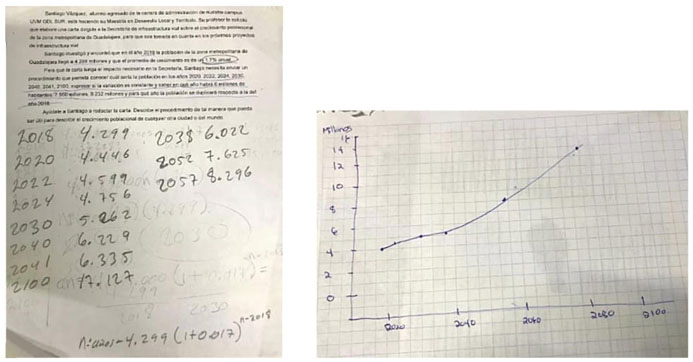 Santiago Vázquez, alumno egresado de la carrera de administración de nuestro campus
UVM GDL SUR, está haciendo su Maestría en Desarrollo Local y Territorio. Su profesor le solicitó
que elabore una carta dirigida a la Secretaría de Infraestructura vial sobre el crecimiento poblacional
de la zona metropolitana de Guadalajara, para que sea tomada en cuenta en los próximos proyectos
de infraestructura vial.
Santiago investigó y encontró que en el año 2018 la población de la zona metropolitana de
Guadalajara llegó a 4.299 millones y que el promedio de crecimiento es de un 1.7% anual.
Para que la carta tenga el impacto necesario en la Secretaría, Santiago necesita enviar un
procedimiento que permita conocer cuál sería la población en los años 2020, 2022, 2024, 2030,
2040, 2041, 2100, expresar si la variación es constante y saber en qué año habrá 6 millones de
habitantes, 7.600 millones, 8.232 millones y para qué año la población se duplicará respecto a la del
año 2018.
Ayúdale a Santiago a redactar la carta. Describe el procedimiento de tal manera que pueda
ser útil para describir el crecimiento poblacional de cualquier otra ciudad o del mundo.
2018 4.299
2020 4.446
2022 4.599
2024 4.756
2030 5.262
2040 6.229
2041 6.335
2100 17.127
2038 6.022
2052 7.625
2057 8.296
4.299 (1+0.017)^n-2018
Millones
14
12
10
8
6
4
2
0
2020 2040 2060 2080 2100